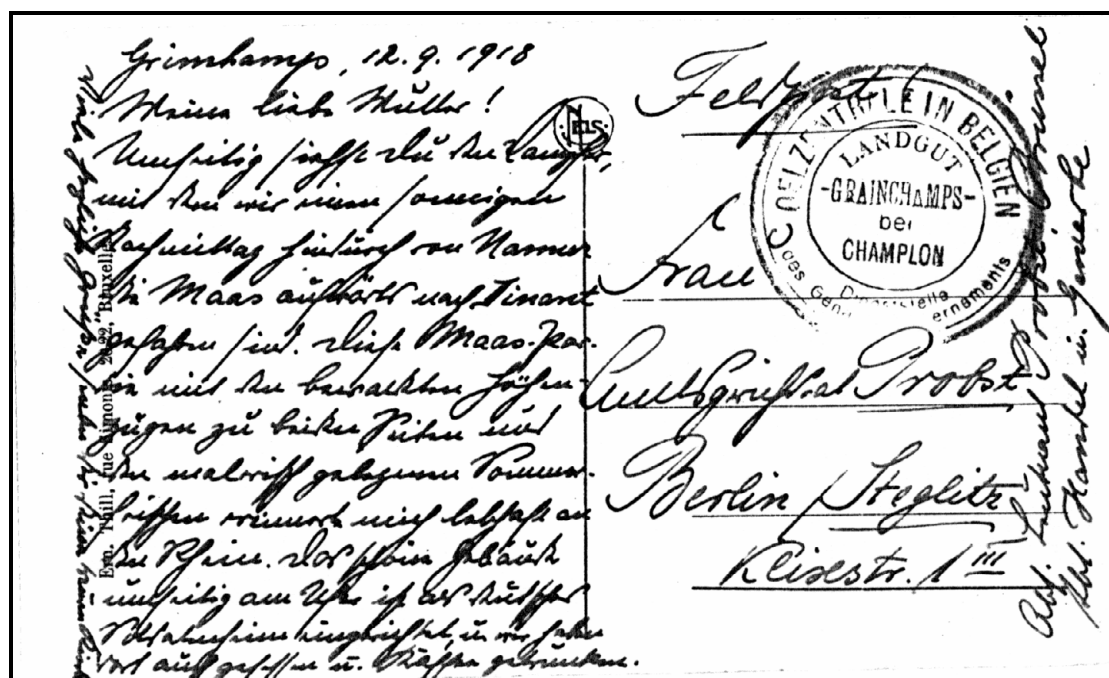 Grimkamp, 12.9.1918
Meine liebe Mutter!
Umseitig siehst Du den Dampfer,
mit dem wir einen sonnigen
Nachmittag hindurch von Namur
die Maas aufwärts nach Dinant
gefahren sind. Diese Maas-Par-
tie mit den bewaldeten Höhen-
zügen zu beiden Seiten und
den malerisch gelegenen Sommer-
frischen erinnert mich lebhaft an
den Rhein. Das schöne Gebäude
umseitig am Ufer ist als deutsches
Soldatenheim eingerichtet, u. wir haben
dort auch gesessen u. Kaffee getrunken.
Viele herzliche Grüße, sendet Dir Dein treuer
Ern. Thill, rue Simonis, 20-22, Bruxelles
NELS
Feldpost!
OELZENTRALE IN BELGIEN
LANDGUT
-GRAINCHAMPS-
bei
CHAMPLON
Dienststelle
des Gen ernements
Frau
Amtsgerichtsrat Probst
Berlin / Steglitz
Kleisestr. 1 III
Abs. Leutnant Probst Brüssel
Abt. Handel u. Gewerbe